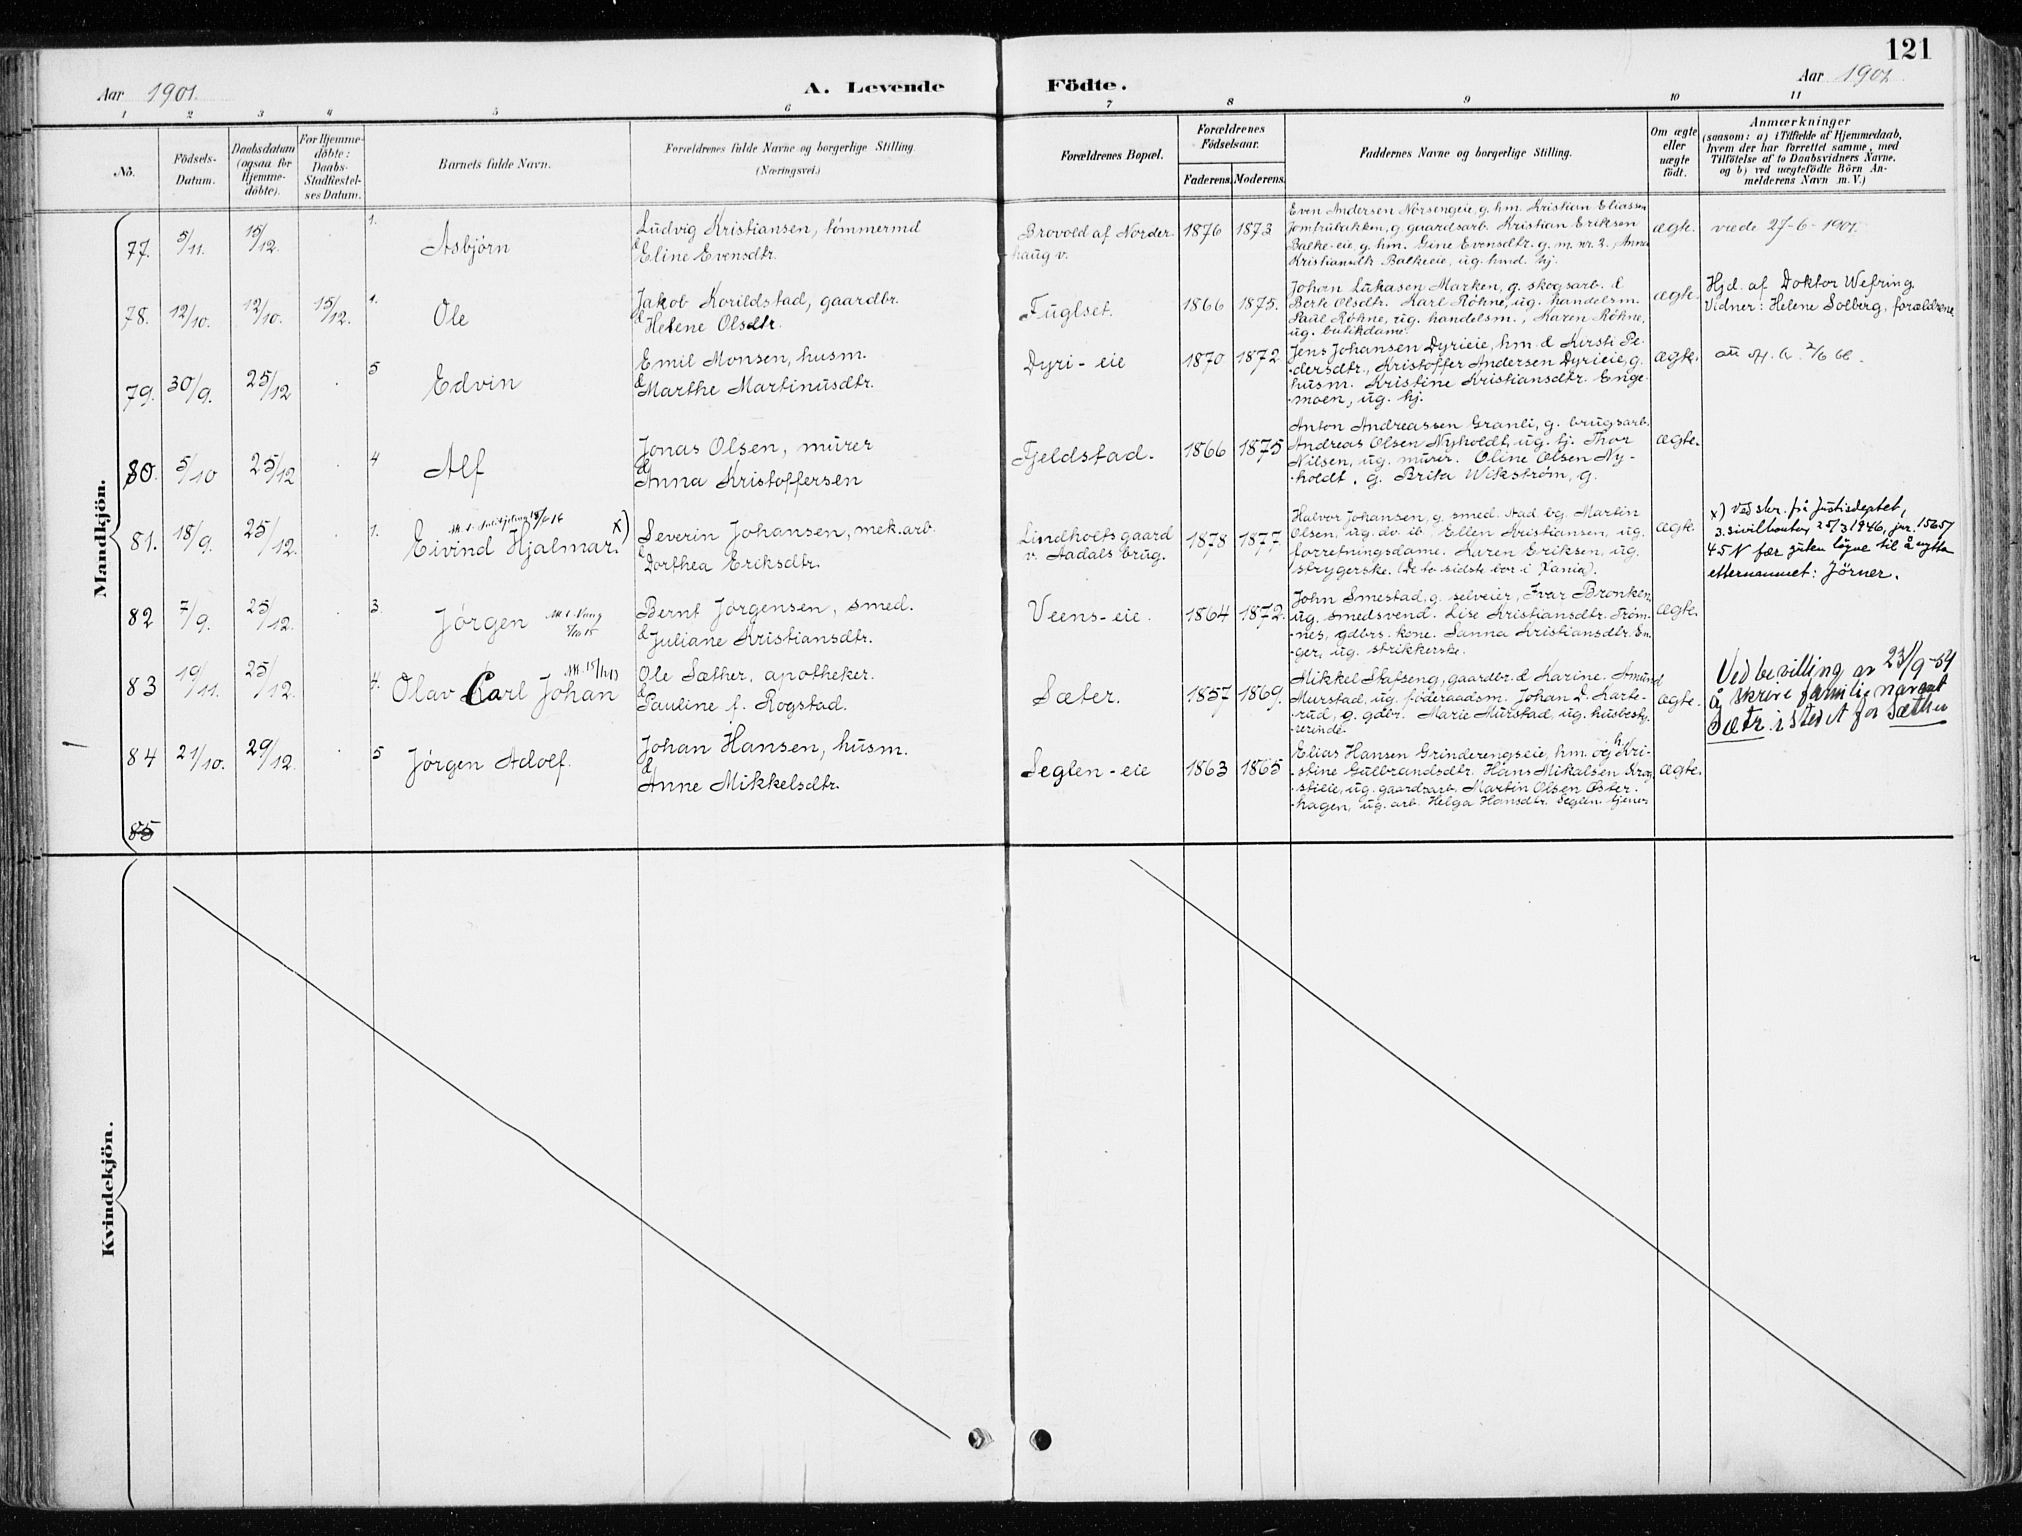 121
Aar 1901.
A. Levende Födte.
Aar 1901.
1 2 3 4 5 6 7 8 9 10 11
Nö.
Födsels-
Datum.
Daabsdatum
(ogsaa for
Hjemme-
döbte).
For Hjemme-
döbte:
Daabs-
Stadfæstel-
ses Datum.
Barnets fulde Navn.
Forældrenes fulde Navne og borgerlige Stilling.
(Næringsvei.)
Forældrenes Bopæl.
Forældrenes
Födselsaar.
Faderens. Moderens.
Faddernes Navne og borgerlige Stilling.
Om ægte
eller
uægte
födt.
Anmærkninger
(saasom: a) i Tilfælde af Hjemmedaab,
hvem der har forrettet samme, med
Tilföielse af to Daabsvidners Navne.
og b) ved uægtefödte Börn An-
melderens Navn m. V.)
Mandkjön.
77. 5/11. 15/12. 1. Asbjörn
Ludvig Kristiansen, tömmermd
& Eline Evensdtr.
Brovold af Norder-
haug v.
1876 1873
Even Andersen Norsengeie, g. hm. Kristian Eliassen
Jomfrubakken, g. gaardsarb. Kristian Eriksen
Balke-eie, g. hm. Gine Evensdtr. g. m. nr. 2. Anna
Kristiansdtr. Balkeeie, ug. hmd. hj.
ægte. viede 27-6-1901.
78. 12/10. 12/10. 15/12. 1. Ole
Jakob Korildstad, gaardbr.
& Helene Olsdtr.
Fuglset. 1866 1875.
Johan Lukasen Marken, g. skogsarb. &
Berte Olsdtr. Karl Röhne, ug. handelsm.
Paul Röhne, ug. handelsm., Karen Röhne,
ug. butikdame.
ægte.
Hjd. af Doktor Wefring.
Vidner: Helene Solberg, forældrene
79. 30/9. 25/12 5 Edvin
Emil Monsen, husm.
& Marthe Martinusdtr.
Dyri-eie 1870 1872
Jens Johansen Dyrieie, hm. & Kersti Pe-
dersdtr., Kristoffer Andersen Dyrieie, g.
husm. Kristine Kristiansdtr. Enge-
moen, ug. hj.
ægte.
80. 5/10 25/12 4 Alf
Jonas Olsen, murer
& Anna Kristoffersen
Fjeldstad. 1866 1875
Anton Andreassen Granli, g. brugsarb.
Andreas Olsen Nyholdt, ug. tj. Thor
Nilsen, ug. murer. Oline Olsen Ny-
holdt, g. Brita Wikström, g.
ægte.
81. 18/9. 25/12. 1. Eivind Hjalmar. x)
Severin Johansen, mek.arb.
& Dorthea Eriksdtr.
Lindholts gaard
v. Aadals brug.
1878 1877
Halvor Johansen, g. smed. Aad. bg. Martin
Olsen, ug. do. ib., Ellen Kristiansen, ug.
forretningsdame. Karen Eriksen, ug.
strygerske. (De to sidste bor i Xania).
ægte.
x) Ved skr. frå Justisdeptet,
3. sivilkontor 25/3 1946, jnr. 1565/
45 N får guten løyve til å nytta
etternamnet: Jörner.
82 7/9. 25/12. 3. Jörgen
Bernt Jörgensen, smed.
& Juliane Kristiansdtr.
Veens-eie. 1864 1872.
John Smestad, g. selveier, Ivar Bronken,
ug. smedsvend. Lise Kristiansdtr. Tröm-
nes, gdbrs. kone. Sanna Kristiansdtr. En-
ger, ug. strikkerske.
ægte.
83 19/11. 25/12. 4. Olav Carl Johan
Ole Sæther, apotheker.
& Pauline f. Rogstad.
Sæter. 1857 1869.
Mikkel Skafseng, gaardbr. & Karine. Amund
Murstad, ug. föderaadsm. Johan D. Karte-
rud, g. gdbr. Marie Murstad, ug. husbesty-
rerinde.
ægte.
Ved bevilling av 23/9-54
å skrive familienavnet
Sætr. istedet for Sæther
84 21/10. 29/12. 5 Jörgen Adolf.
Johan Hansen, husm.
& Anne Mikkelsdtr.
Seglen-eie 1863 1865
Elias Hansen Grinderengseie, hm. og h. Kri-
stine Gulbrandsdtr. Hans Mikalsen Krog-
stieie, ug. gaardsarb. Martin Olsen Öster-
hagen, ug. arb. Helga Hansdtr. Seglen. tjener
ægte.
85
Kvindekjön.